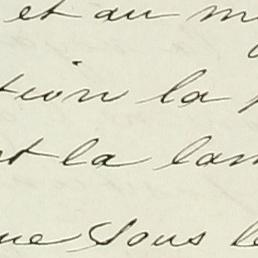 et au m
tion la p
nt la lan
ue sous le